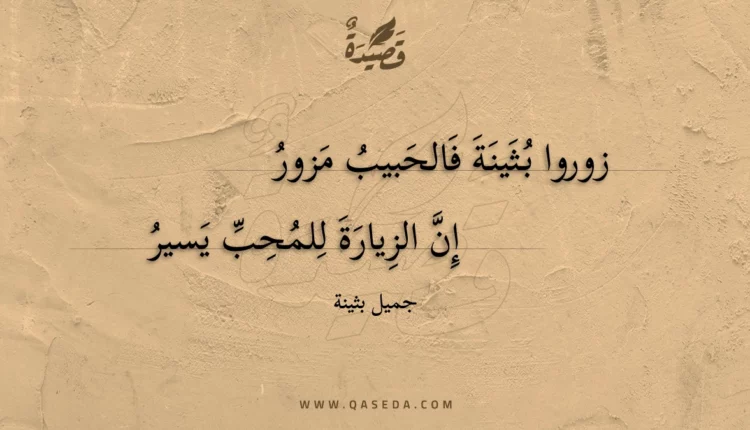 قَصِيْدَةٌ
زوروا بُثَينَةَ فَالحَبيبُ مَزورُ
إِنَّ الزِيارَةَ لِلمُحِبِّ يَسيرُ
جميل بثينة
WWW.QASEDA.COM